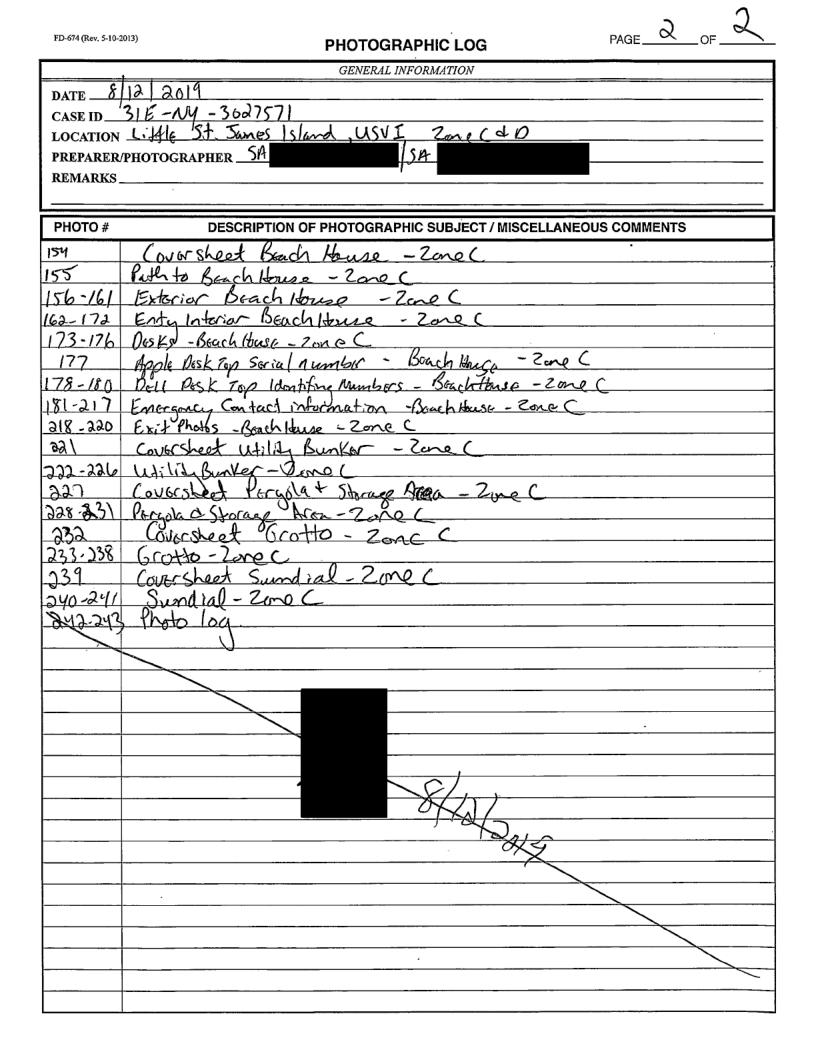 FD-674 (Rev. 5-10-2013)
PHOTOGRAPHIC LOG
PAGE 2 OF 2
GENERAL INFORMATION
DATE 8/12/2019
CASE ID 31E-NY-3027571
LOCATION Little St. James Island, USVI Zone C & D
PREPARER/PHOTOGRAPHER SA / SA
REMARKS
PHOTO # DESCRIPTION OF PHOTOGRAPHIC SUBJECT / MISCELLANEOUS COMMENTS
154 Coversheet Beach House - Zone C
155 Path to Beach House - Zone C
156-161 Exterior Beach House - Zone C
162-172 Enty Interior Beach House - Zone C
173-176 Desks - Beach House - Zone C
177 Apple Desk Top Serial number - Beach House - Zone C
178-180 Dell Desk Top Identifing Numbers - Beach House - Zone C
181-217 Emergency Contact information - Beach House - Zone C
218-220 Exit Photos - Beach House - Zone C
221 Coversheet Utility Bunker - Zone C
222-226 Utility Bunker - Zone C
227 Coversheet Pergola + Storage Area - Zone C
228-231 Pergola & Storage Area - Zone C
232 Coversheet Grotto - Zone C
233-238 Grotto - Zone C
239 Coversheet Sundial - Zone C
240-241 Sundial - Zone C
242-243 Photo log
8/12/2019